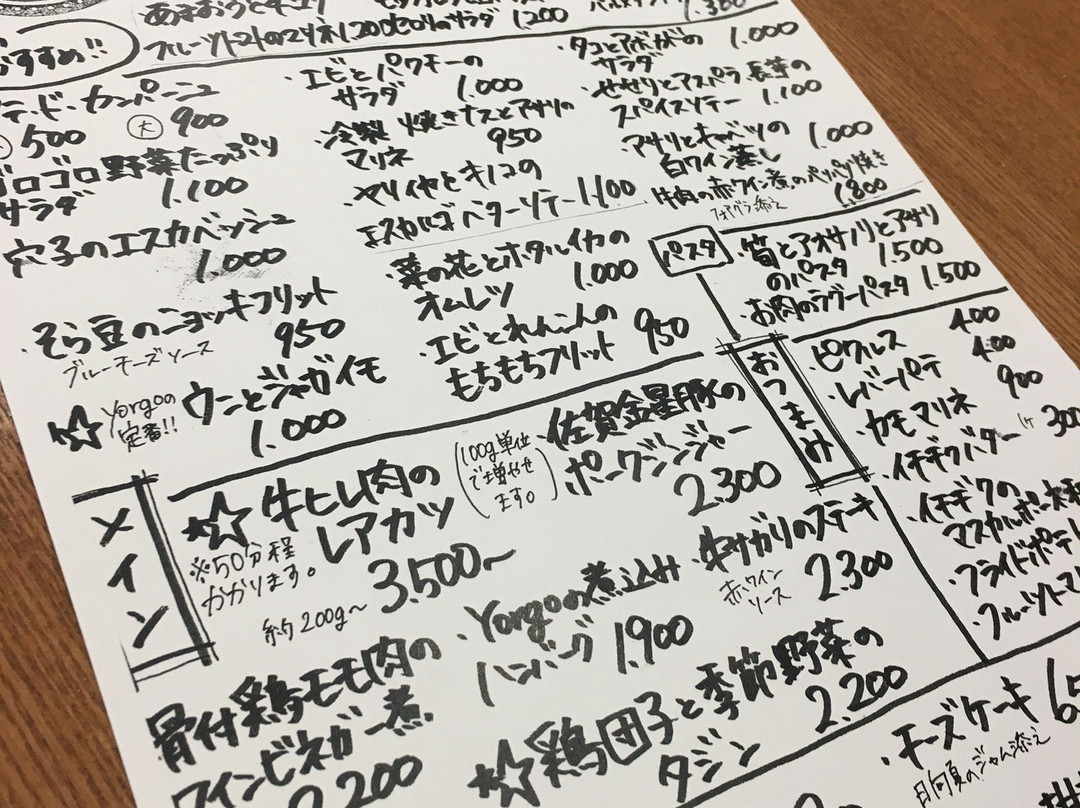 おすすめ!!
フルーツトマトのマリネ 1.200
のサラダ 1.200
1.300
テ・ド・カンパーニュ
500 大 900
ゴロゴロ野菜たっぷり
サラダ 1.100
穴子のエスカベッシュ
1.000
・そら豆のニョッキフリット
ブルーチーズソース 950
☆ Yorgoの
定番!!
ウニとジャガイモ
1.000
・エビとパクチーの
サラダ 1.000
・冷製 焼きナスとアサリの
マリネ 950
・ヤリイカとキノコの
エスカルゴバターソテー 1.100
・菜の花とホタルイカの
オムレツ 1.000
・エビとれんこんの
もちもちフリット 950
・タコとアボカドの
サラダ 1.000
・せせりとアスパラ 長芋の
スパイスソテー 1.100
アサリとキャベツの
白ワイン蒸し 1.000
・牛肉の赤ワイン煮のパリパリ焼き
フォアグラ添え 1.800
パスタ
・筍とアオサノリとアサリ
のパスタ 1.500
・お肉のラグーパスタ 1.500
おつまみ
・ピクルス 400
・レバーパテ 400
・カモマリネ 900
・イチヂクバター 1ヶ 300
・イチヂクの
マスカルポーネ
・フライドポテト
・フルーツトマト
メイン
☆ 牛ヒレ肉の
レアカツ
(100g単位
で増やせ
ます。)
※50分程
かかります。
約200g〜 3.500〜
・佐賀金星豚の
ポークジンジャー
2.300
・牛サガリのステーキ
赤ワイン
ソース 2.300
・Yorgoの煮込み
ハンバーグ 1.900
骨付鶏モモ肉の
ワインビネガー煮
2.200
☆鶏団子と季節野菜の
タジン 2.200
・チーズケーキ
日向夏のジャム添え